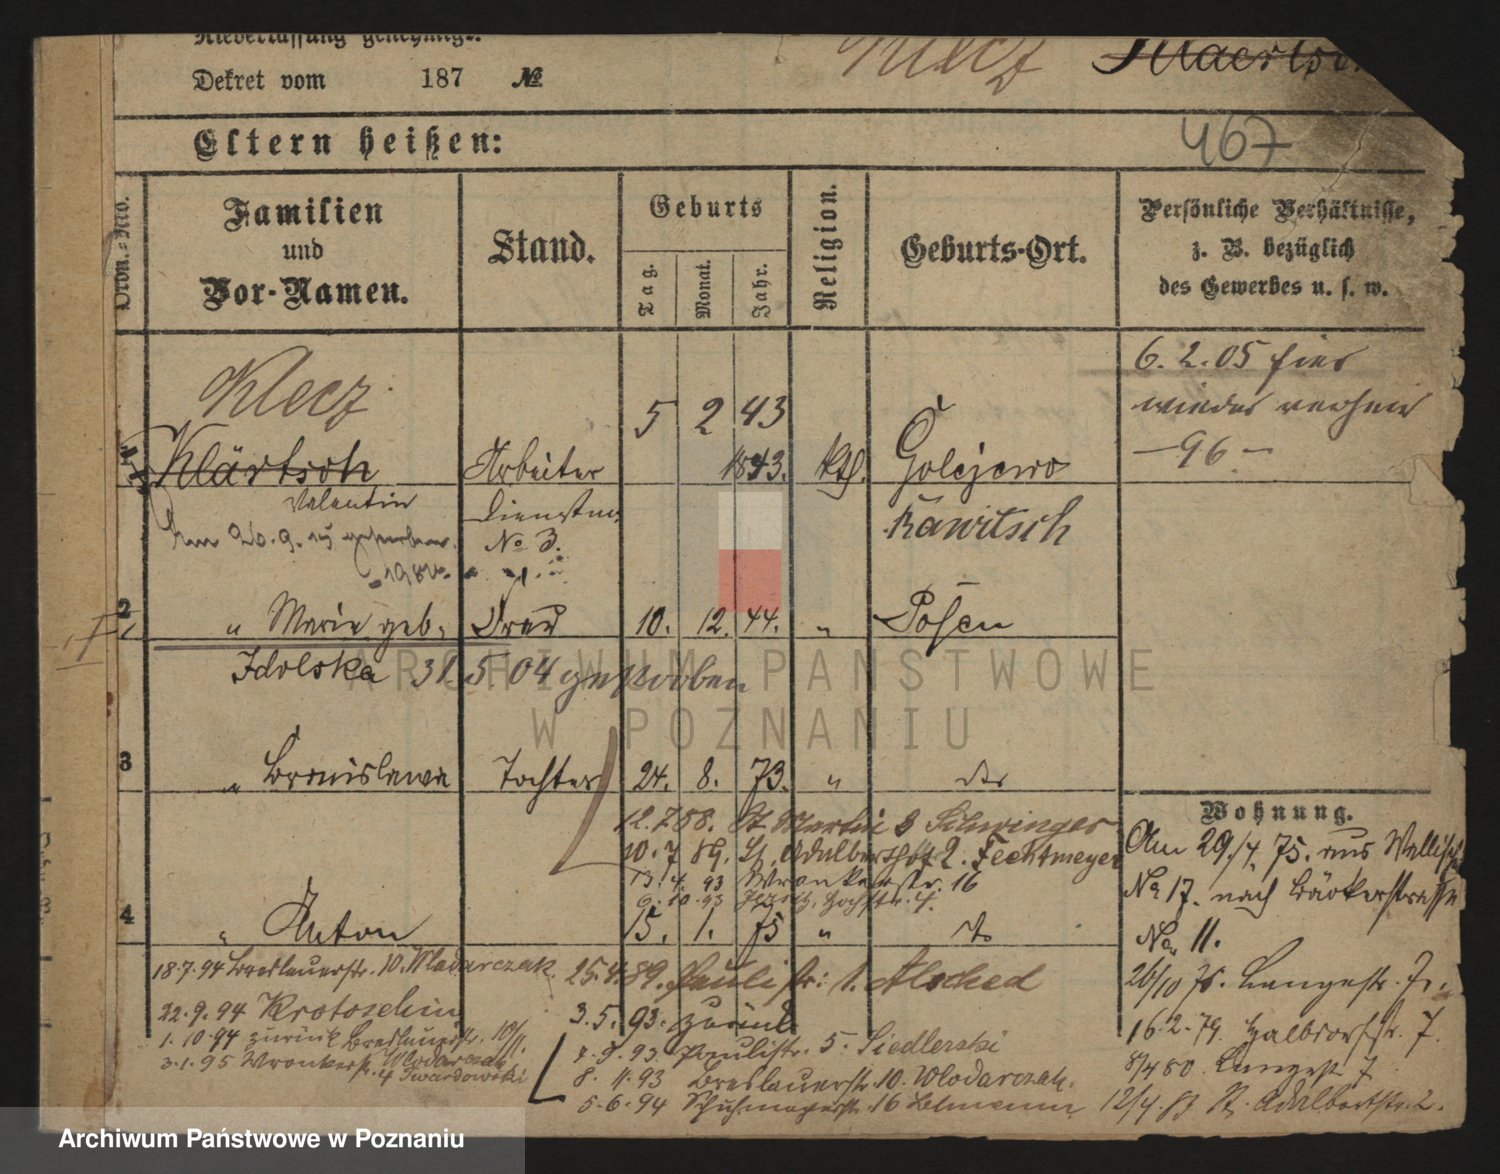 Niederlassung genehmigt.
Dekret vom 187 №
Klecz Klaertsch
467
Eltern heißen:
Ordn.-No.
Familien
und
Vor-Namen.
Stand.
Geburts
Tag.
Monat.
Jahr.
Religion.
Geburts-Ort.
Persönliche Verhältnisse,
z. B. bezüglich
des Gewerbes u. s. w.
6. 2. 05 hier
wieder
— 96. —
Klecz
5 2 43
Klärtsch Arbeiter 1843. kth. Golejewo
Valentin Dienstm. Rawitsch
Am 20. 9. 15 gestorben No 3.
2 " Marie geb. Frau 10. 12. 44. " Posen
Idolska 31. 5. 04 gestorben
3 " Bronislawa Tochter 24. 8. 73. " do
Wohnung.
12. 7 88. St Martin 8 Schwinger
10. 7 89. St. Adalbertstr 2. Fechtmeyer
13. 4. 93 Wronkerstr. 16
9. 10. 93 Jezitz, Hochstr. 4.
4 " Anton 15. 1. 75 " do
Am 29./4. 75. aus Wallischei
No 17. nach Bäckerstrasse
No. 11.
26/10 75. Langestr. 7.
16. 2. 79. Halbdorfstr. 7.
8/4 80 Langestr 7
12/4. 83 St. Adalbertstr. 2.
18. 7. 94 Breslauerstr. 10. Wlodarczak.
22. 9. 94 Krotoschin
1. 10. 94 zurück Breslauerstr. 10/11.
3. 1. 95 Wronkerstr. 4 Twardowski
Wlodarczak
25. 4. 89. Paulistr: 1. Alsched
3. 5. 93. zurück
7. 9. 93. Paulistr. 5. Siedlerski
8. 11. 93 Breslauerstr. 10. Wlodarczak.
5. 6. 94 Schuhmacherstr. 16
ARCHIWUM PAŃSTWOWE
W POZNANIU
Archiwum Państwowe w Poznaniu